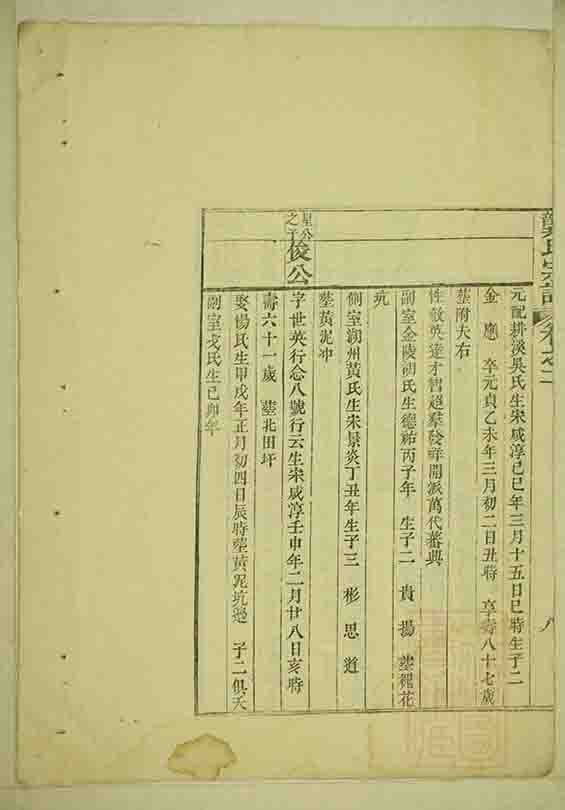 龔氏宗譜 卷之二 八
元配耕溪吳氏生宋咸淳己巳年三月十五日巳時生子二
金 應 卒元貞乙未年三月初二日丑時 享壽八十七歲
塟附夫右
性敏英達才智超羣發祥開派萬代蕃興
副室金陵胡氏生德祐丙子年 生子二 貴 揚 塟裡花
坑
側室潤州黃氏生宋景炎丁丑年生子三 彬 思 道
塟黃泥冲
星公之子 俊公
字世英行念八號行云生宋咸淳壬申年二月廿八日亥時
壽六十一歲 塟北田圩
娶楊氏生甲戌年正月初四日辰時塟黃泥坑 子二俱夭
副室戈氏生己卯年